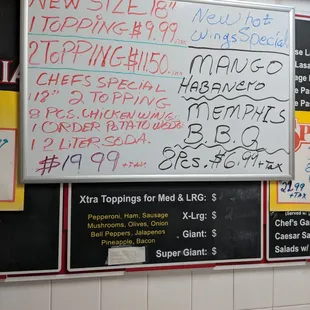 NEW SIZE 18"
1 TOPPING $9.99 +TAX
2 TOPPING $11.50 +TAX
CHEFS SPECIAL
18" 2 TOPPING
8 PCS. CHICKEN WING
1 ORDER POTATO WEDG
1 2 LITER SODA
$19.99 +TAX
New hot
wings Special
MANGO
HABANERO
MEMPHIS
B.B.Q
8Pcs. $6.99 +TAX
Xtra Toppings for Med & LRG: $
Pepperoni, Ham, Sausage
Mushrooms, Olives, Onion
Bell Peppers, Jalapenos
Pineapple, Bacon
X-Lrg: $
Giant: $
Super Giant: $
Chef's Ga
Caesar Sa
Salads w/